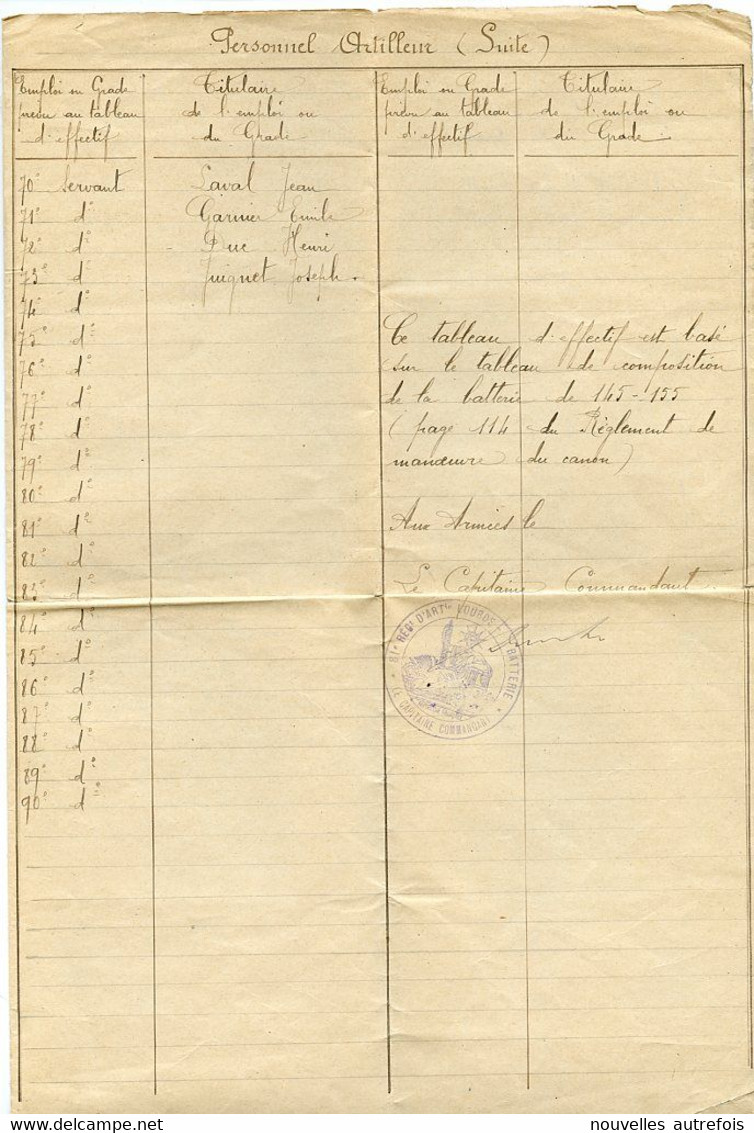 Personnel Artilleur (Suite)
Emploi ou Grade
prévu au tableau
d'effectif
Titulaire
de l'emploi ou
du Grade
Emploi ou Grade
prévu au tableau
d'effectif
Titulaire
de l'emploi ou
du Grade
70° Servant Laval Jean
71° d° Garnier Emile
72° d° Duc Henri
73° d° Juignet Joseph.
74° d°
75° d°
76° d°
77° d°
78° d°
79° d°
80° d°
81° d°
82° d°
83° d°
84° d°
85° d°
86° d°
87° d°
88° d°
89° d°
90° d°
Ce tableau d'effectif est basé
sur le tableau de composition
de la batterie de 145-155
(page 114 du Règlement de
manœuvre du canon)
Aux Armées le
Le Capitaine Commandant
81e RÉGt D'ARTie LOURDE BATTERIE
LE CAPITAINE COMMANDANT
nouvelles autrefois